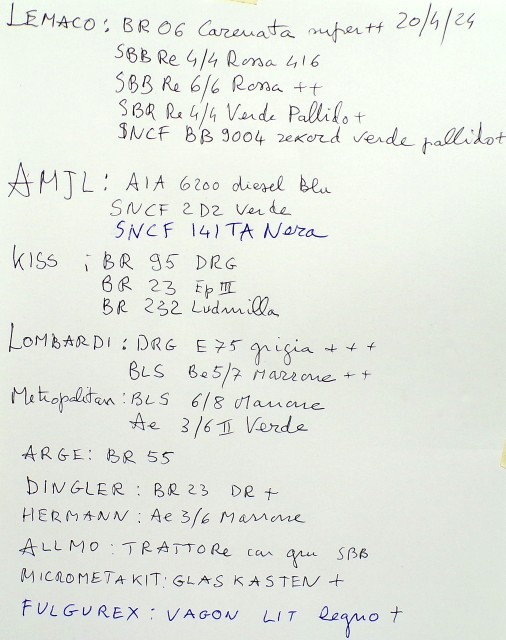 LEMACO: BR 06 Carenata super++ 20/4/24
SBB Re 4/4 Rossa 416
SBB Re 6/6 Rossa ++
SBB Re 4/4 Verde Pallido +
SNCF BB 9004 rekord verde pallido+
AMJL: A1A 6200 diesel Blu
SNCF 2D2 Verde
SNCF 141 TA Nera
KISS : BR 95 DRG
BR 23 Ep III
BR 232 Ludmilla
LOMBARDI: DRG E 75 grigia +++
BLS Be 5/7 Marrone ++
Metropolitan: BLS 6/8 Marrone
Ae 3/6 II Verde
ARGE: BR 55
DINGLER: BR 23 DR +
HERMANN: Ae 3/6 Marrone
ALLMO: TRATTORE con gru SBB
MICROMETAKIT: GLASKASTEN +
FULGUREX: VAGON LIT legno +